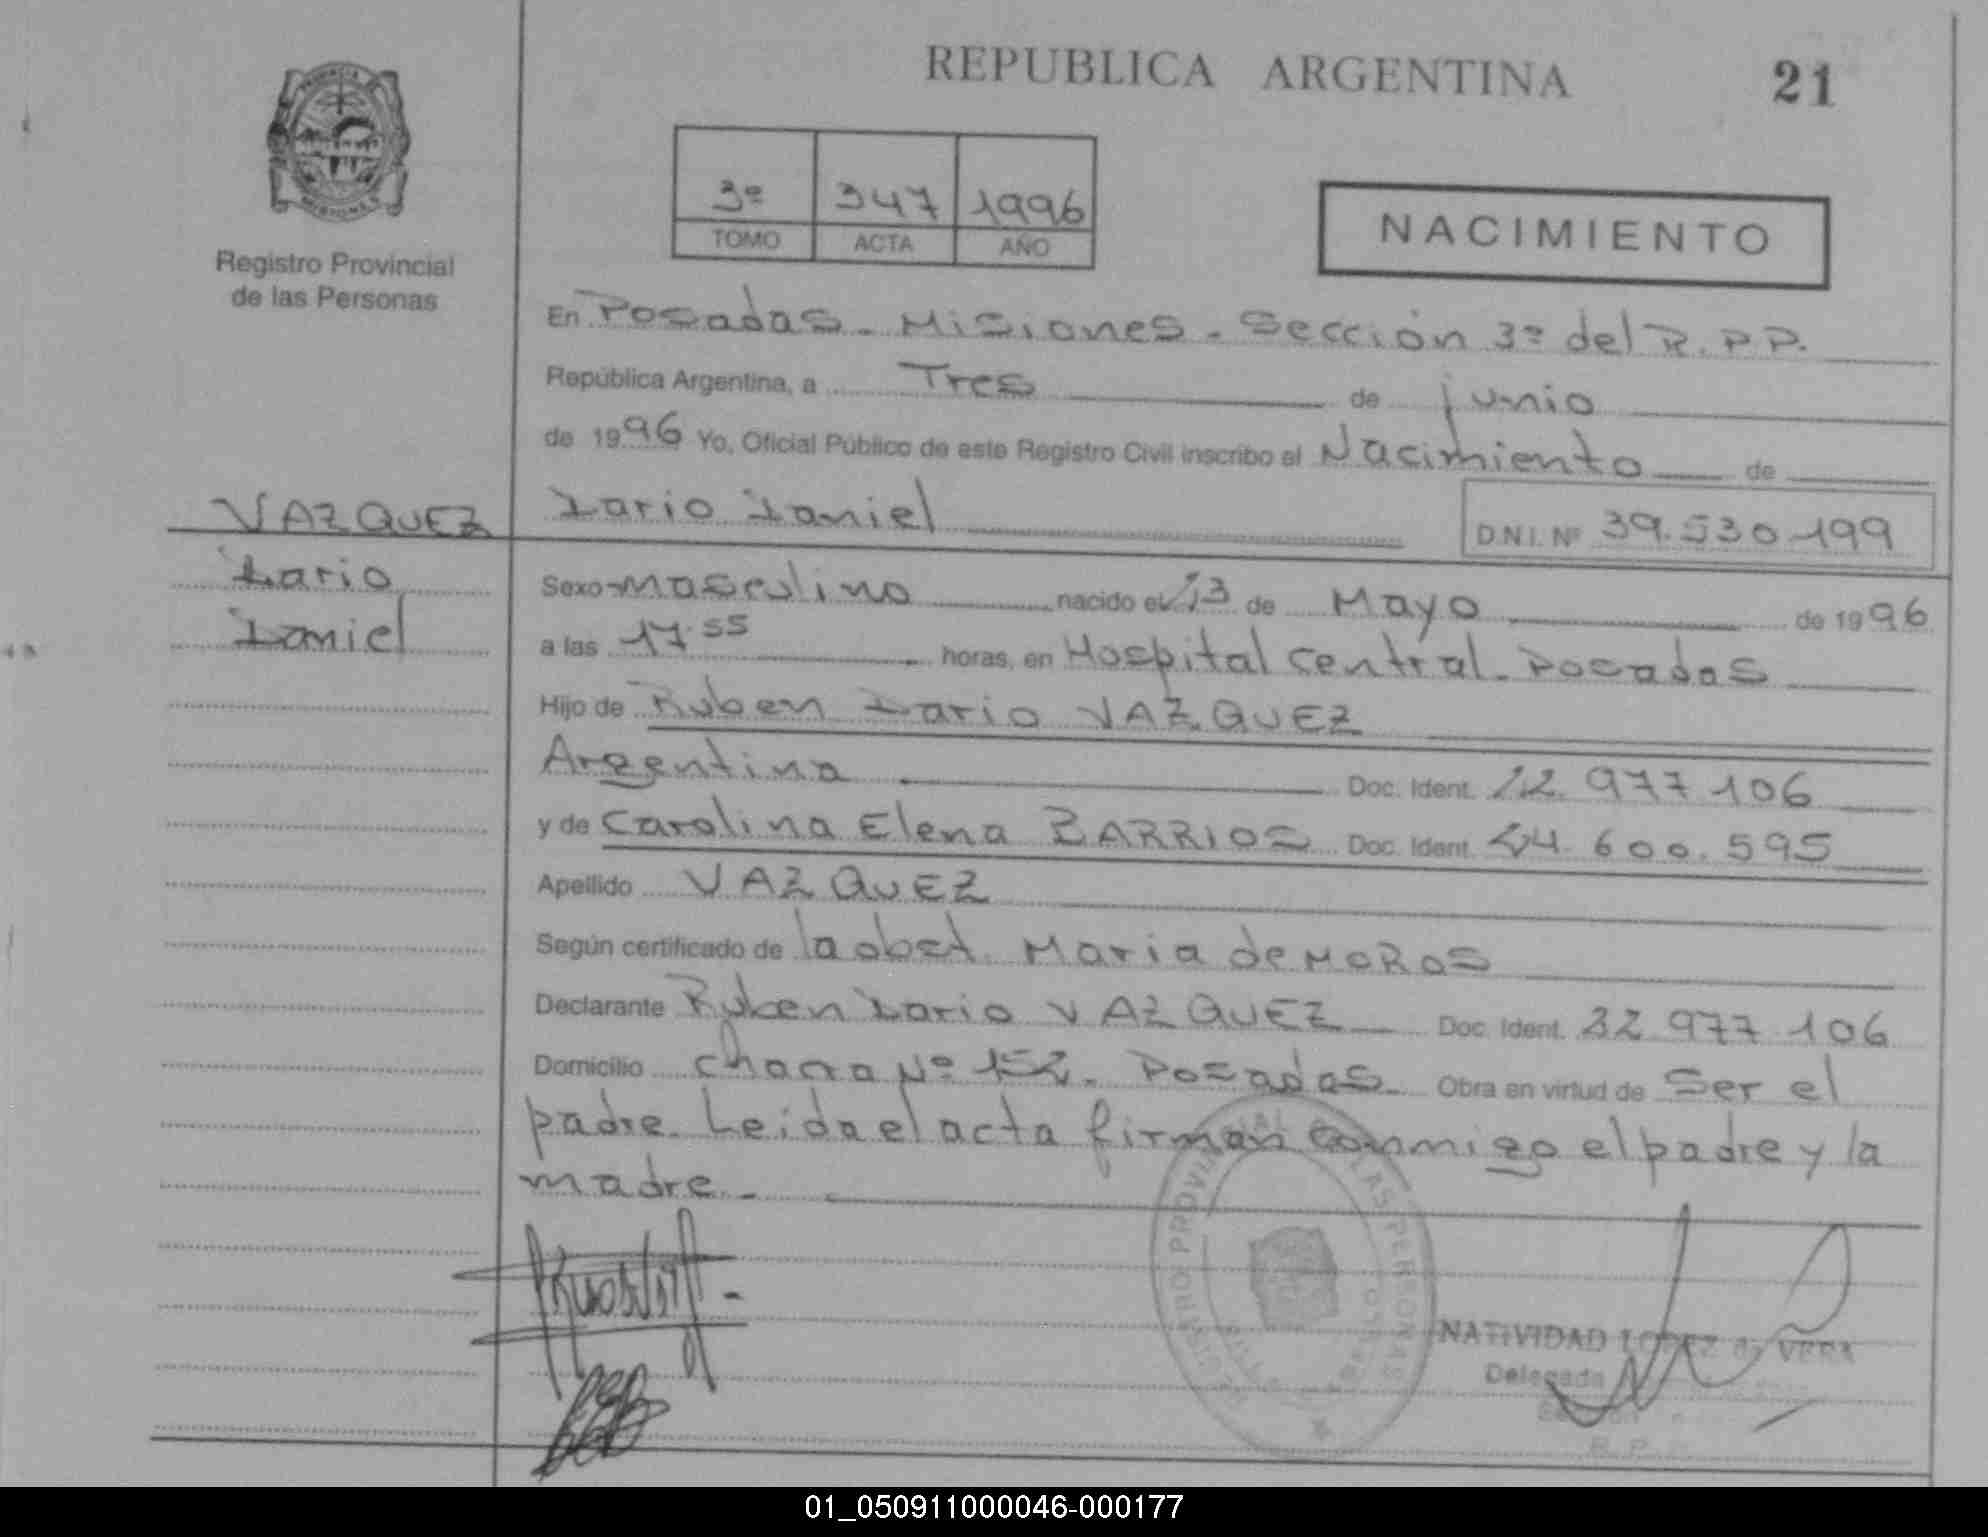 REPUBLICA ARGENTINA
21
3º 347 1996
TOMO ACTA AÑO
NACIMIENTO
MISIONES
Registro Provincial
de las Personas
En Posadas - Misiones - Sección 3ª del R.P.P.
República Argentina, a Tres de junio
de 1996 Yo, Oficial Público de este Registro Civil inscribo el Nacimiento de
VAZQUEZ Dario Daniel D.N.I. Nº 39.530.199
Dario
Daniel
Sexo masculino nacido el 13 de Mayo de 1996
a las 17.55 horas, en Hospital Central - Posadas
Hijo de Ruben Dario VAZQUEZ
Argentina Doc. Ident. 22.977.106
y de Carolina Elena BARRIOS Doc. Ident. 24.600.595
Apellido VAZQUEZ
Según certificado de la obst. Maria de MOROS
Declarante Ruben Dario VAZQUEZ Doc. Ident. 22 977.106
Domicilio chacra Nº 152 - Posadas - Obra en virtud de Ser el
padre - Leida el acta firman conmigo el padre y la
madre -
REGISTRO PROVINCIAL DE LAS PERSONAS
NATIVIDAD LOPEZ de VERA
Delegada
01_050911000046-000177